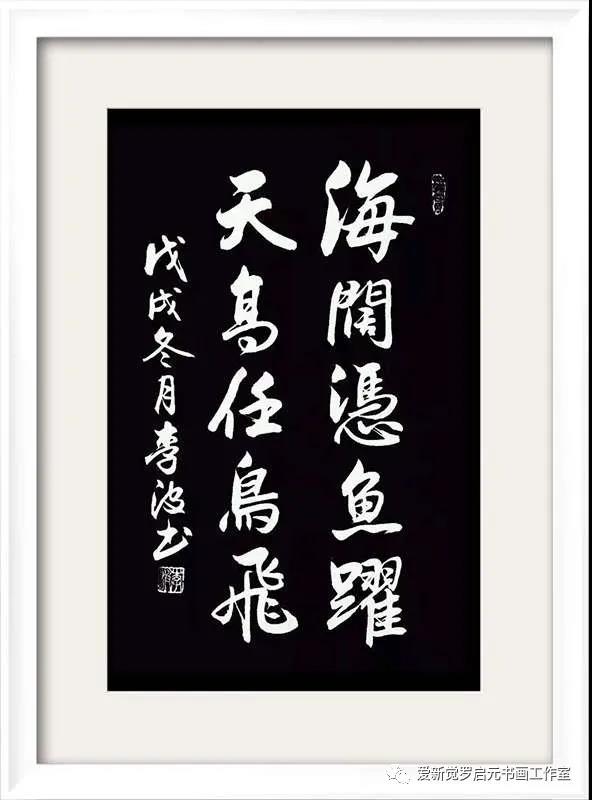 海闊憑魚躍
天高任鳥飛
戊戌冬月李波书
爱新觉罗启元书画工作室